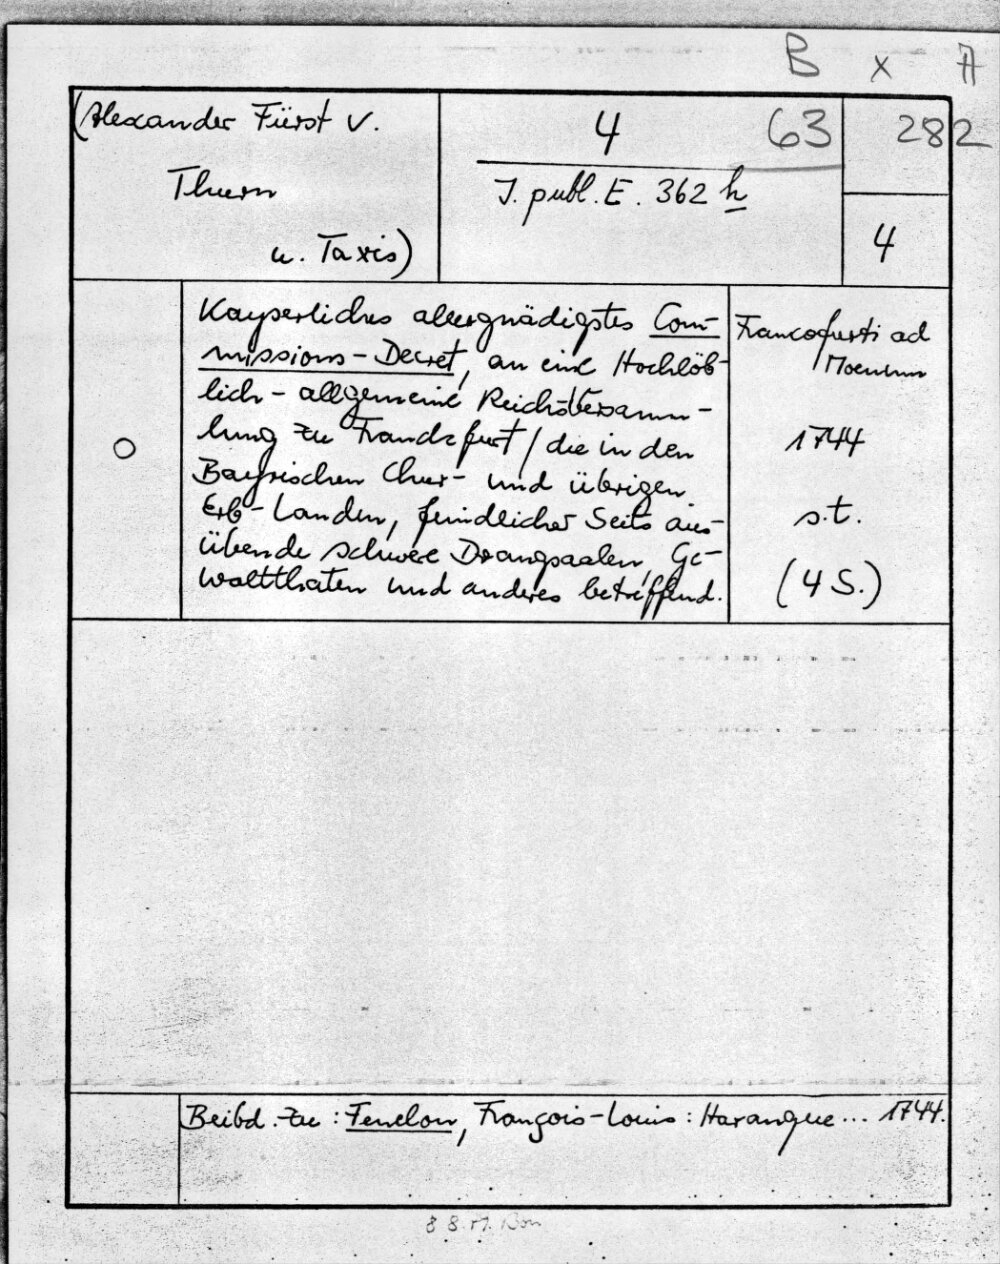 B x A
(Alexander Fürst v.
Thurn
u. Taxis)
4 63
J. publ. E. 362 h
282
4
Kayserliches allergnädigstes Com-
missions-Decret, an eine Hochlöb-
lich-allgemeine Reichsversamm-
lung zu Franckfurt / die in den
Bayrischen Chur- und übrigen
Erb-Landen, feindlicher Seits aus-
übende schwere Drangsaalen, Ge-
waltthaten und anderes betreffend.
Francofurti ad
Moenum
1744
s.t.
(4 S.)
Beibd. zu : Fenelon, François-Louis : Harangue ... 1744.